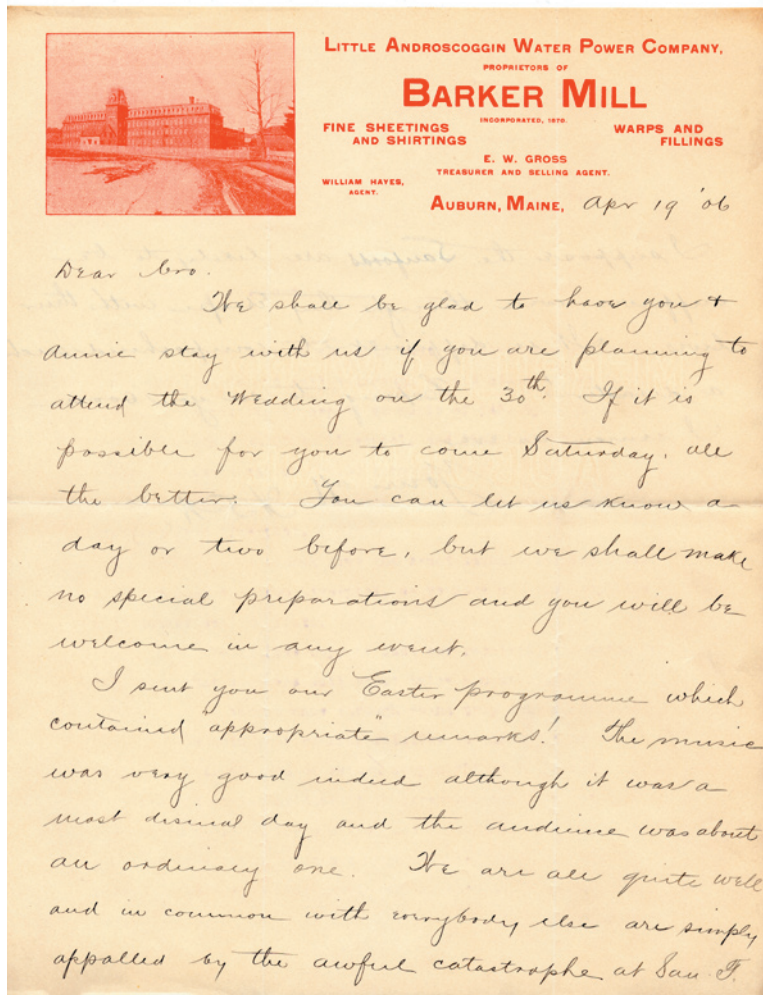 LITTLE ANDROSCOGGIN WATER POWER COMPANY,
PROPRIETORS OF
BARKER MILL
INCORPORATED, 1870.
FINE SHEETINGS
AND SHIRTINGS
WARPS AND
FILLINGS
E. W. GROSS
TREASURER AND SELLING AGENT.
WILLIAM HAYES,
AGENT.
AUBURN, MAINE, Apr 19 '06
Dear Bro.
We shall be glad to have you &
Annie stay with us if you are planning to
attend the Wedding on the 30th. If it is
possible for you to come Saturday, all
the better. You can let us know a
day or two before, but we shall make
no special preparations and you will be
welcome in any event.
I sent you our Easter programme which
contained "appropriate" remarks! The music
was very good indeed although it was a
most dismal day and the audience was about
an ordinary one. We are all quite well
and in common with everybody else are simply
appalled by the awful catastrophe at San F.